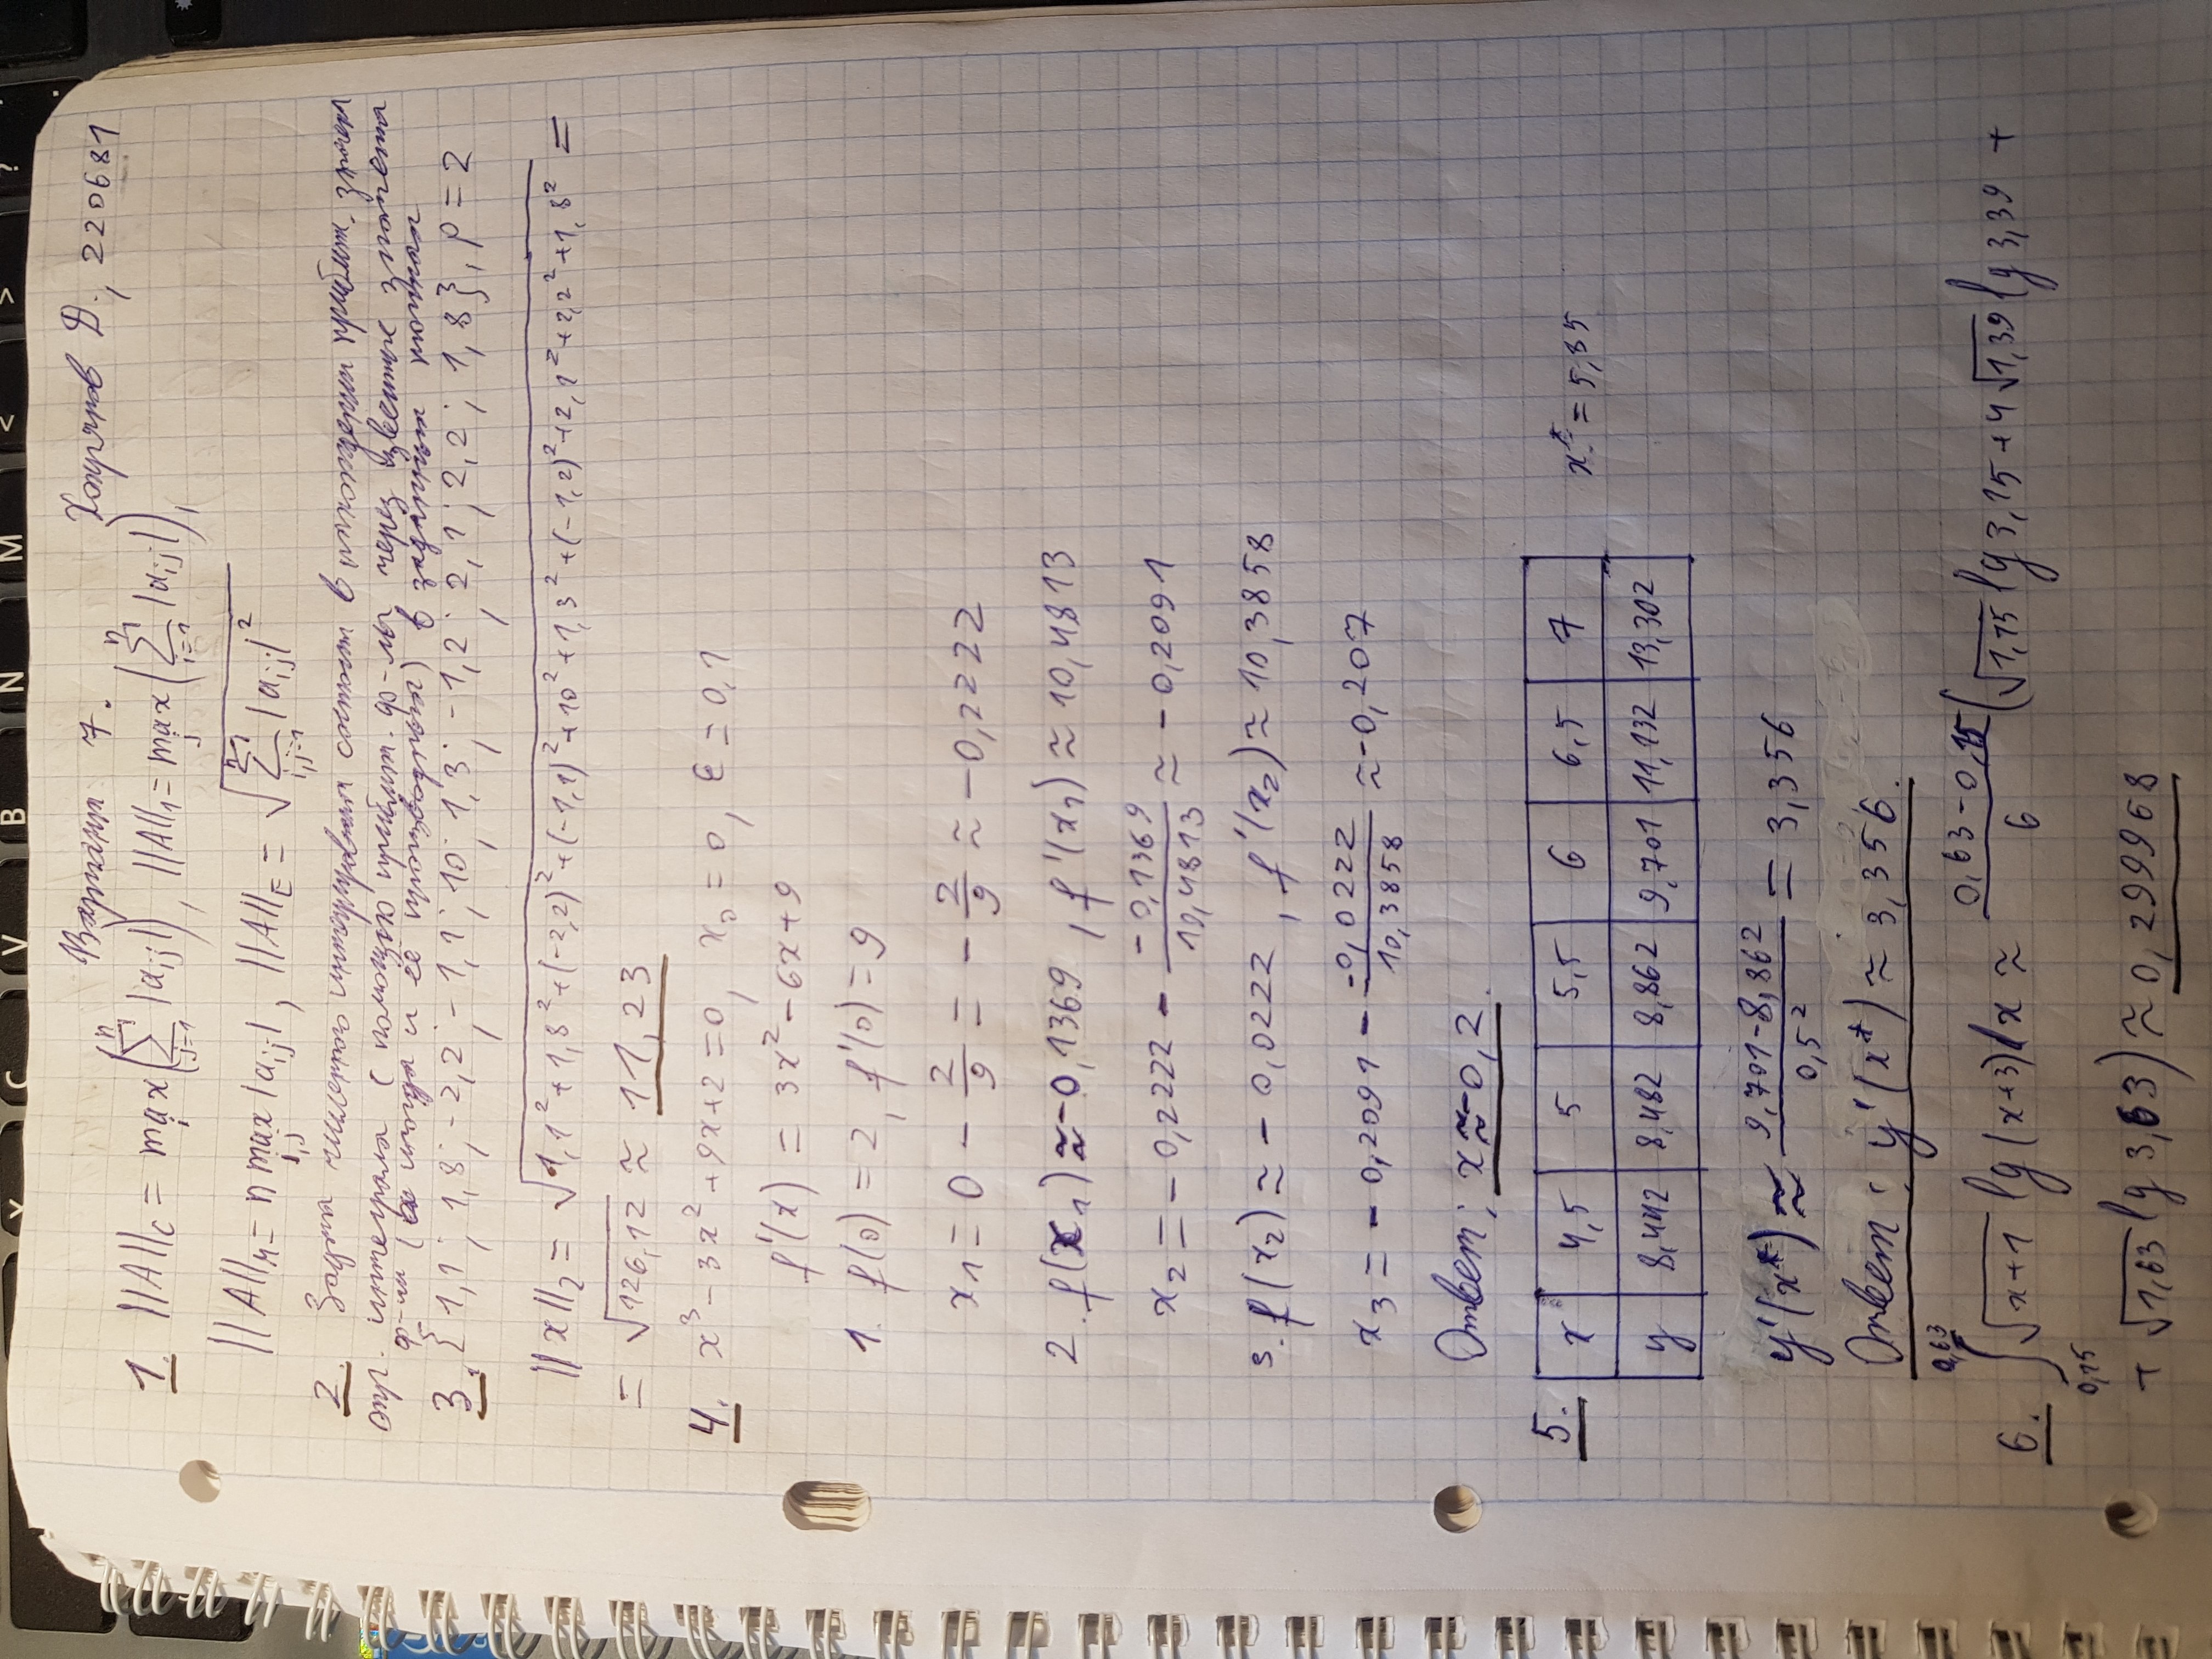 Вариант 7. Хопряков Д., 220681
1. ||A||_C = max_i (∑_{j=1}^n |a_ij|), ||A||_1 = max_j (∑_{i=1}^n |a_ij|),
||A||_M = n max_{i,j} |a_ij|, ||A||_E = √(∑_{i,j=1}^n |a_ij|²)
2. Задача численного интегрирования состоит в нахождении приближ. значен
опр. интеграла (с помощью приближ. ф-лы через известные значения
ф-ии (иногда и её производных) в заданных точках
3. { 1,1; 1,8; -2,2; -1,1; 10; 1,3; -1,2; 2,1; 2,2; 1,8 }, p = 2
||x||_2 = √(1,1² + 1,8² + (-2,2)² + (-1,1)² + 10² + 1,3² + (-1,2)² + 2,1² + 2,2² + 1,8²) =
= √126,12 ≈ 11,23
4. x³ - 3x² + 9x + 2 = 0, x₀ = 0, ε = 0,1
f'(x) = 3x² - 6x + 9
1. f(0) = 2, f'(0) = 9
x₁ = 0 - 2/9 = - 2/9 ≈ -0,2222
2. f(x₁) ≈ -0,1369, f'(x₁) ≈ 10,4813
x₂ = -0,2222 - -0,1369/10,4813 ≈ -0,2091
3. f(x₂) ≈ -0,0222, f'(x₂) ≈ 10,3858
x₃ = -0,2091 - -0,0222/10,3858 ≈ -0,207
Ответ: x ≈ -0,2.
5. x 4,5 5 5,5 6 6,5 7 x* = 5,85
y 8,442 8,482 8,862 9,701 11,132 13,302
y'(x*) ≈ 9,701-8,862/0,5² = 3,356
Ответ: y'(x*) ≈ 3,356.
6. ∫_{0,15}^{0,63} √(x+1) lg(x+3)dx ≈ 0,63-0,15/6 (√1,15 lg 3,15 + 4√1,39 lg 3,39 +
+ √1,63 lg 3,63) ≈ 0,29968